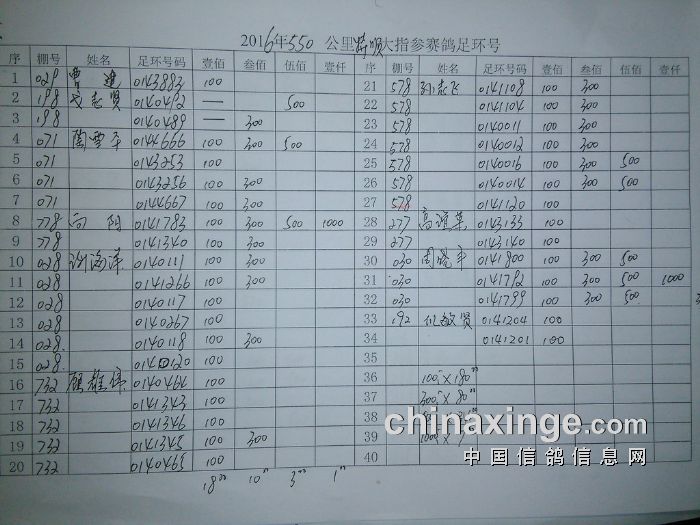 2016年550公里特欧大指参赛鸽足环号
序 棚号 姓名 足环号码 壹佰 叁佰 伍佰 壹仟
1 029 曹建 0143883 100
2 198 0140412 — 500
3 198 0140489 — 300
4 071 陶雪平 0144666 100 300 500
5 071 0143253 100
6 071 0143256 100 300
7 071 0144667 100 300
8 778 向阳 0141783 100 300 500 1000
9 778 0141340 100 300
10 028 谢海洋 0140111 100 300
11 028 0141266 100 300
12 028 0140117 100
13 028 0140267 100
14 028 0140118 100 300
15 028 0140120 100
16 732 0140464 100
17 732 0141343 100
18 732 0141346 100
19 732 0141345 100 300
20 732 0140465 100
18 10 3 1
序 棚号 姓名 足环号码 壹佰 叁佰 伍佰 壹仟
21 578 孙志飞 0141108 100 300
22 578 0141104 100 300
23 578 0140011 100 300
24 578 0140012 100 300
25 578 0140016 100 300 500
26 578 0140014 100 300 500
27 578 0141120 100
28 277 高 0143133 100
29 277 0143140 100
30 030 周晓平 0141800 100 300 500
31 030 0141792 100 300 500 1000
32 030 0141799 100 300 500
33 192 倪敏贤 0141204 100
34 0141201 100
35
36 100 × 180
37 300 × 80
38
39
40
chinaxinge.com
中国信鸽信息网